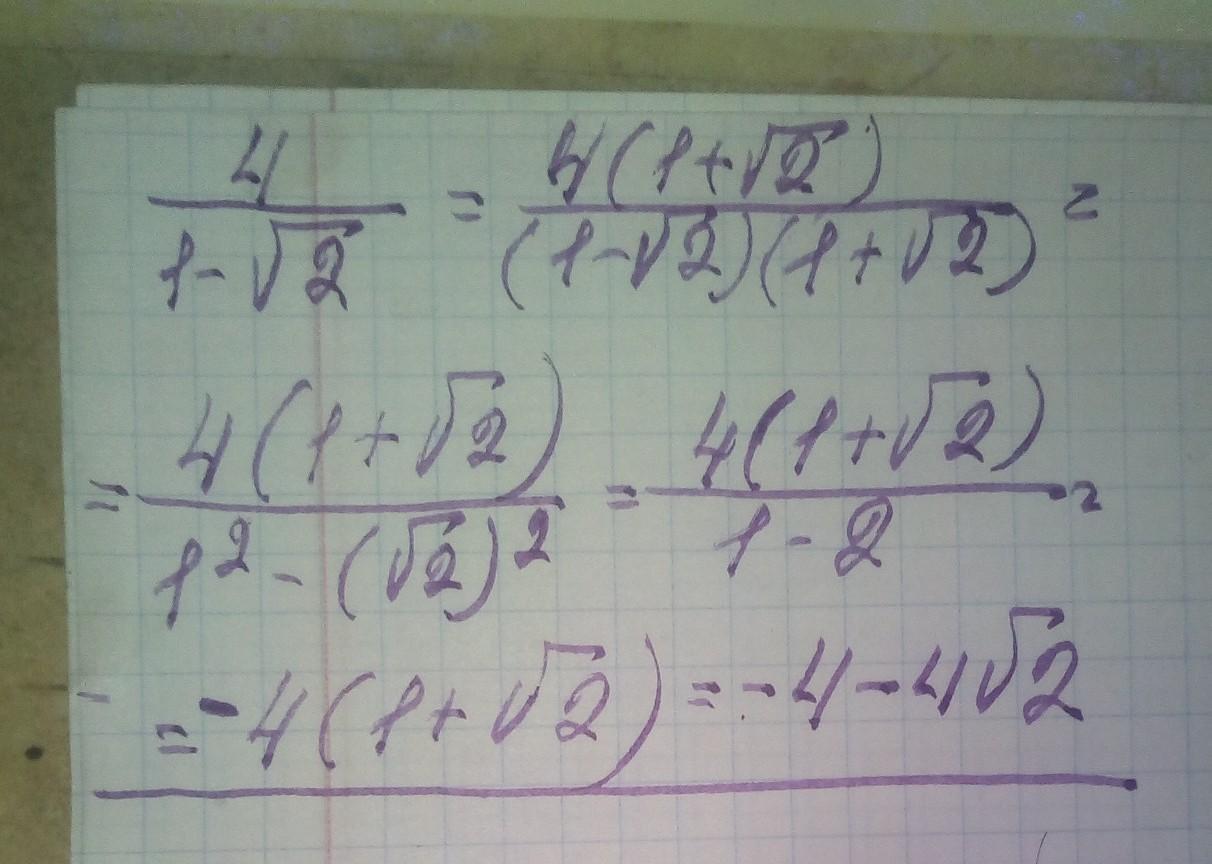 4/(1-√2) = 4(1+√2)/((1-√2)(1+√2)) =
= 4(1+√2)/(1²-(√2)²) = 4(1+√2)/(1-2) =
= -4(1+√2) = -4-4√2